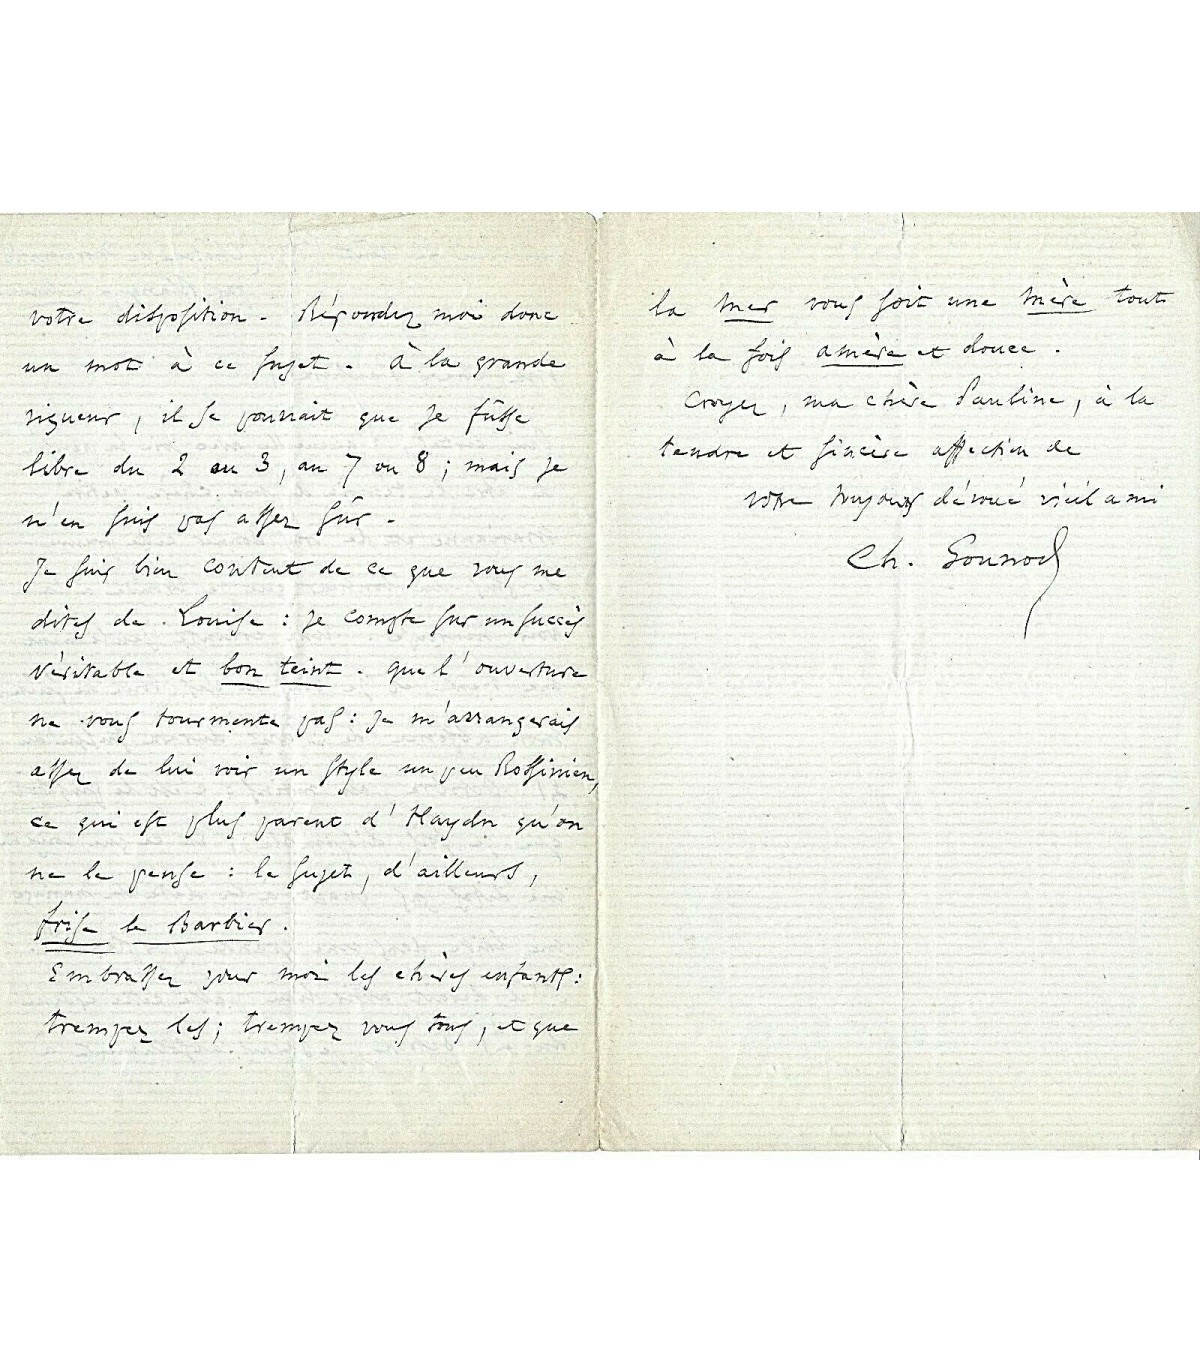 votre disposition. Répondez moi donc
un mot à ce sujet. À la grande
rigueur, il se pourrait que je fûsse
libre du 2 au 3, au 7 ou 8; mais je
n'en suis pas assez sûr.
Je suis bien content de ce que vous me
dites de Louise: je compte sur un succès
véritable et bon teint. que l'ouverture
ne vous tourmente pas: je m'arrangerais
assez de lui voir un style un peu Rossinien,
ce qui est plus parent d'Haydn qu'on
ne le pense: le sujet, d'ailleurs,
frise le Barbier.
Embrassez pour moi les chères enfants:
trempez les; trempez vous tous, et que
la mer vous soit une mère tout
à la fois amère et douce.
Croyez, ma chère Pauline, à la
tendre et sincère affection de
votre toujours dévoué vieil ami
Ch. Gounod